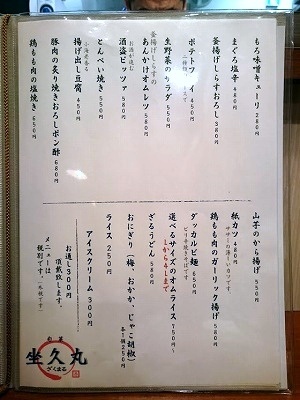 もろ味噌キューリ 280円
まぐろ塩辛 480円
釜揚げしらすおろし 380円
ポテトフライ 450円
生野菜のサラダ 550円
釜揚げしらすの
あんかけオムレツ 580円
お酒が進む
酒盗ピッツァ 580円
とんぺい焼き 550円
小海老香る
揚げ出し豆腐 450円
豚肉の炙り焼きおろしポン酢 680円
鶏もも肉の塩焼き 650円
山芋のから揚げ 550円
紙カツ 480円
ササミの薄〜いカツです
鶏もも肉のガーリック揚げ 580円
ダッカルビ麺 650円
ピリ辛焼きそばです
選べるサイズのオムライス 750円〜
Sから4Lまで
ざるうどん 580円
おにぎり(梅、おかか、じゃこ胡椒)
各1個250円
ライス 250円
アイスクリーム 300円
お通し300円
頂戴致します。
メニューは
税別です。
坐久丸
ざくまる